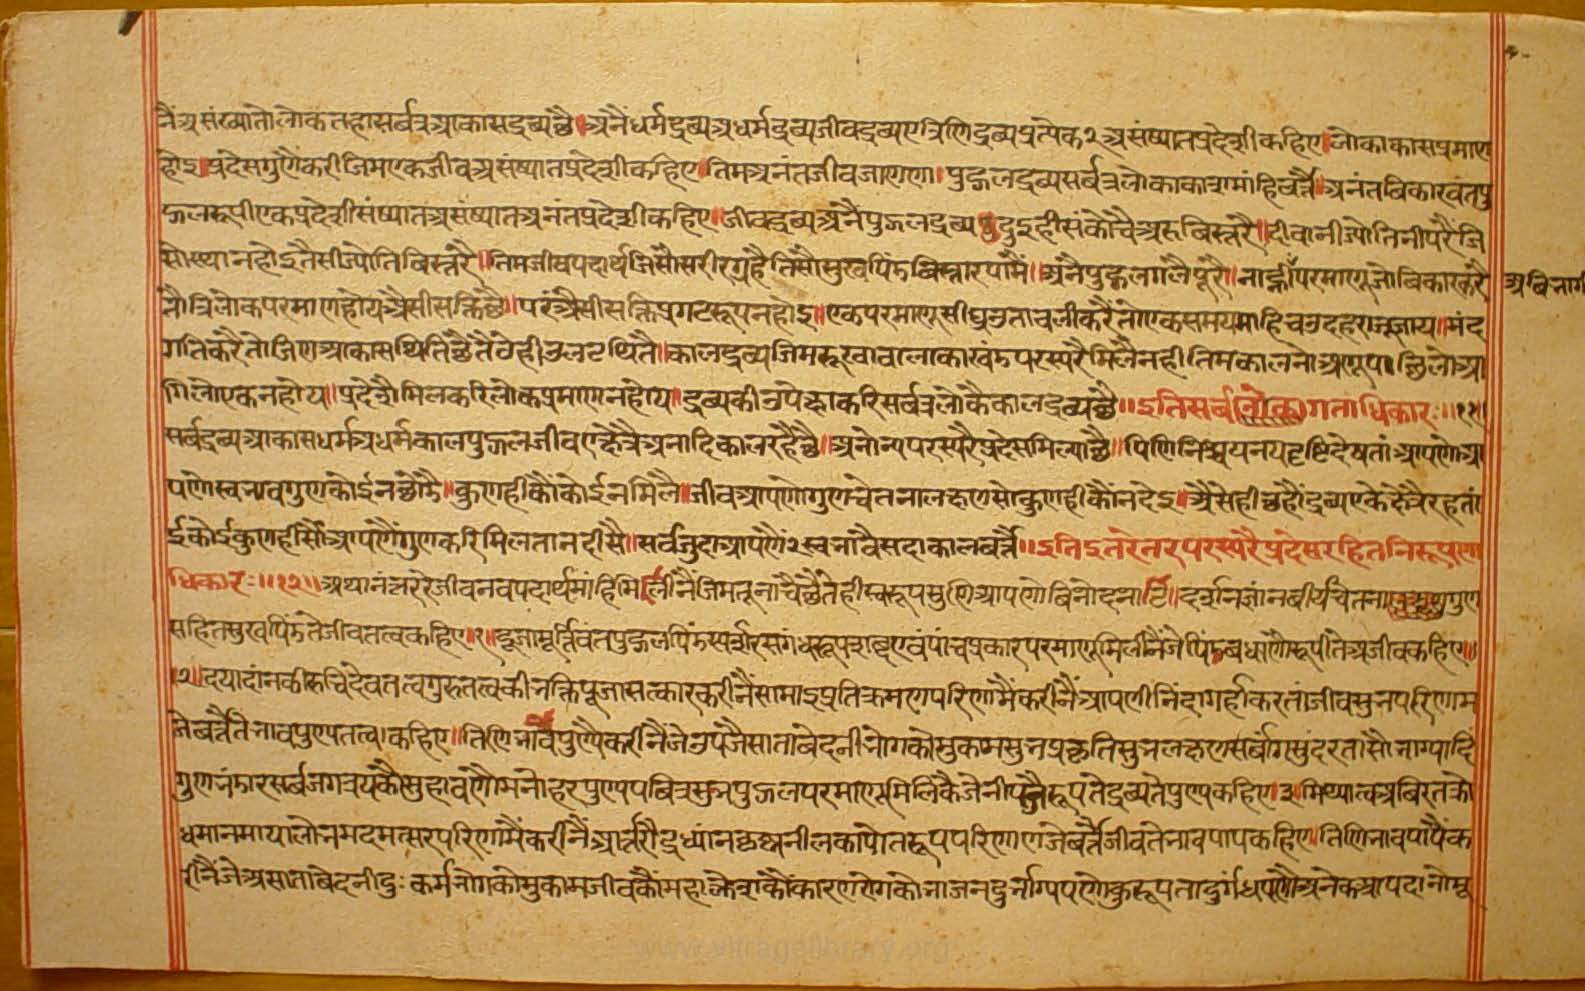 नैं असंख्यातो लोक तहा सर्वत्र आकासद्रव्य छै॥ अनैं धर्मद्रव्य अधर्मद्रव्य जीवद्रव्य ए त्रिणि द्रव्य प्रत्येक २ असंष्यात प्रदेशी कहिए॥ लोकाकास प्रमाण
होइ॥ प्रदेस गुणैं करी जिम एक जीव असंष्यात प्रदेशी कहिए॥ तिम अनंत जीव जाणएा॥ पुद्गलद्रव्य सर्वत्र लोकाकाश मांहि वर्त्तै॥ अनंत विकारवंत पु
द्गल रूपी एक प्रदेशी संष्यात असंष्यात अनंत प्रदेशी कहिए॥ जीवद्रव्य अनै पुद्गलद्रव्य ए दुइ ही संकोचै अरु विस्तरै॥ दीवानी ज्योतिनी परैं जि
सो स्थान होइ तैसी ज्योति विस्तरै॥ तिम जीव पदार्थ जिसौ सरीर ग्रहै तिसौ सुखपिंड विस्तार पामैं॥ अनै पुद्गल गलै पूरै॥ नाह्नौ परमाणू जो विकार करै अविभागी
तौ त्रिलोक परमाण होय अैसी सक्ति छै॥ परं अैसी सक्ति प्रगट रूप न होइ॥ एक परमाणू सीघ्र उतावली करैं तो एक समय माहि चउदह राजू जाय॥ मंद
गति करै तो जिण आकास थिति छै तेवेही उलटथितै॥ कालद्रव्य जिम रूखा वालाकाखंड परस्परै मिलै नही तिम कालनो अणू प। छिलो आ
गिलो एक न होय॥ प्रदेशै मिल करि लोक प्रमाण न होय॥ द्रव्यकी उपेक्षा करि सर्वत्र लोकै कालद्रव्य छै॥ इति सर्वलोकागताधिकारः॥११॥
सर्वद्रव्य आकास धर्म अधर्म काल पुद्गल जीव एक्षेत्रै अनादि काल रहै छै॥ अनोन्य परस्परै प्रदेस मिल्या छै॥ पिणि निश्चयनय दृष्टि देषतां आपणो आ
पणो स्वभाव गुण कोई न छोडै॥ कुणही कौं कोई न मिलै॥ जीव आपणो गुण चेतना लक्षण सो कुणही कौं न देइ॥ अैसे ही छहौं द्रव्य एके क्षेत्रै रहतां
ई कोई कुणही सौं आपणैं गुण करि मिलता न दीसै॥ सर्व जुदा आपणैं २ स्वभावै सदाकाल वर्त्तै॥ इति इतरेतर परस्परै प्रदेस रहित निरूपणा
धिकारः॥१२॥ अथानंतर रे जीव नव पदार्थ मांहि मिलीनैं जिम तू नाचै छै ते ही स्वरूप सुणि आपणो विनोद दर्शन ज्ञान वीर्य चेतना गुण
सहित सुखपिंड ते जीवतत्व कहिए॥१॥ दूजा मूर्त्तिवंत पुद्गलपिंड स्पर्श रस गंध रूप शब्द एवं पांच प्रकार परमाणू मिलीनैं जे पिंड बंधाणो रूपी ते अजीव कहिए॥
२॥ दया दांनकी रुचि देवतत्व गुरुतत्वकी भक्ति पूजा सत्कार करीनैं सामाइ प्रतिक्रमण परिणामैं करीनैं आपणी निंदा गर्हा करतां जीव सुभ परिणम
जे वर्त्तै ते भाव पुण्यतत्व कहिए॥ तिणि भाव पुण्यै करीनैं जे उपजै साता वेदनी भोगकौ मुकाम सुभ प्रकृति सुभ लक्षण सर्वांग सुंदरता सौभाग्यादि
गुण भंडार सर्व जगत्रयकौ सुहावणौ मनोहर पुण्य पवित्र सुभ पुद्गल परमाणू मिलिकै जे नीपजै रूप ते द्रव्यते पुण्य कहिए॥३॥ मिथ्यात्व अविरत क्रो
ध मान माया लोभ मद मत्सर परिणामैं करीनैं आर्त्त रौद्र ध्यांन कृष्ण नील कापोत रूप परिणाण जे वर्त्तै जीव ते भाव पाप कहिए॥ तिणि भाव पापैं क
रीनैं जे असाता वेदनी दुःकर्म भोगको मुकाम जीवकौं महा क्लेशकौ कारण रोगको भाजन दुर्भाग्यपणो कुरूपता दुर्गंधपणौ अनेक आपदानो मू